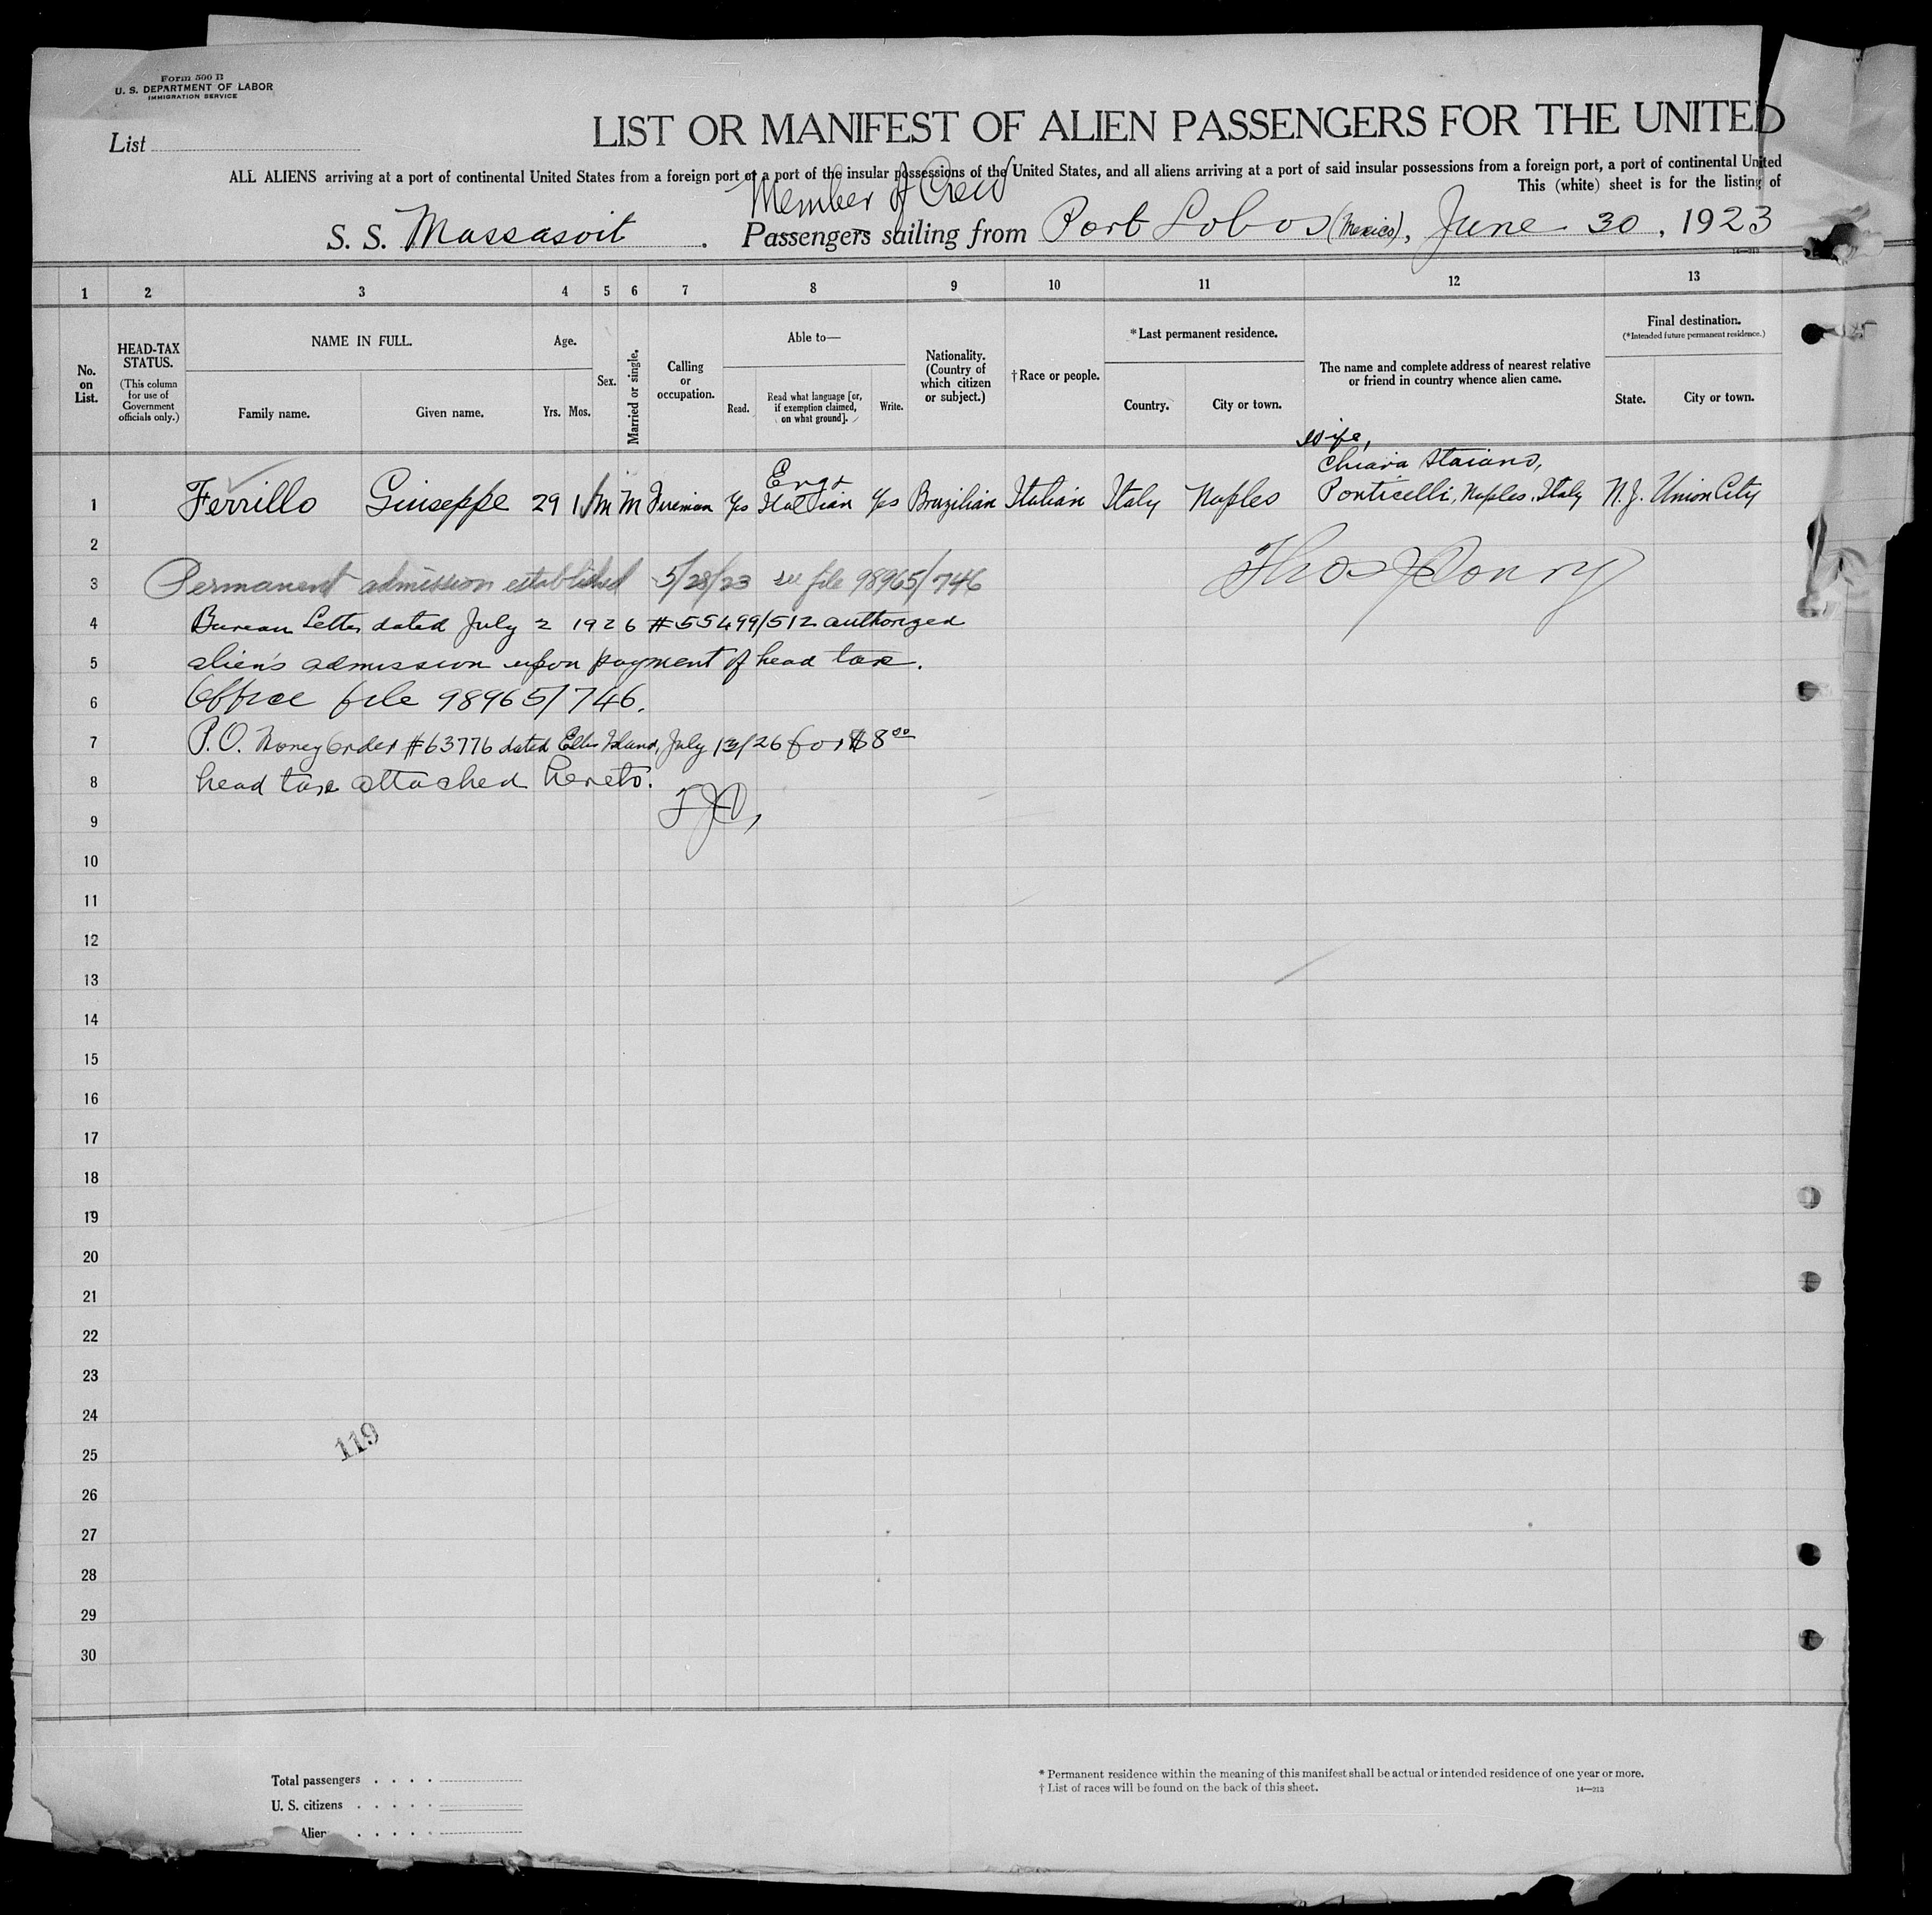 Form 500 B
U. S. DEPARTMENT OF LABOR
IMMIGRATION SERVICE
List
LIST OR MANIFEST OF ALIEN PASSENGERS FOR THE UNITED
ALL ALIENS arriving at a port of continental United States from a foreign port or a port of the insular possessions of the United States, and all aliens arriving at a port of said insular possessions from a foreign port, a port of continental United
This (white) sheet is for the listing of
Member of Crew
S. S. Massasoit . Passengers sailing from Port Lobos (Mexico), June 30, 1923
14—213
1 2 3 4 5 6 7 8 9 10 11 12 13
No. on List.
HEAD-TAX STATUS.
(This column for use of Government officials only.)
NAME IN FULL.
Family name. Given name.
Age.
Yrs. Mos.
Sex.
Married or single.
Calling or occupation.
Able to—
Read. Read what language [or, if exemption claimed, on what ground]. Write.
Nationality. (Country of which citizen or subject.)
† Race or people.
* Last permanent residence.
Country. City or town.
The name and complete address of nearest relative or friend in country whence alien came.
Final destination.
(* Intended future permanent residence.)
State. City or town.
Wife,
Chiara Staiano,
Eng &
1 Ferrillo Giuseppe 29 1 M M Fireman Yes Italian Yes Brazilian Italian Italy Naples Ponticelli, Naples, Italy N.J. Union City
2
3 Permanent admission established 5/28/23 see file 98965/746
4 Bureau Letter dated July 2 1926 #55499/512 authorized
5 alien's admission upon payment of head tax.
6 Office file 98965/746.
7 P.O. Money Order #63776 dated Ellis Island, July 13/26 for $8⁰⁰
8 head tax attached hereto.
9
10
11
12
13
14
15
16
17
18
19
20
21
22
23
24
119
25
26
27
28
29
30
Total passengers . . . .
U. S. citizens . . . . .
Alien . . . . .
* Permanent residence within the meaning of this manifest shall be actual or intended residence of one year or more.
† List of races will be found on the back of this sheet.
14—213